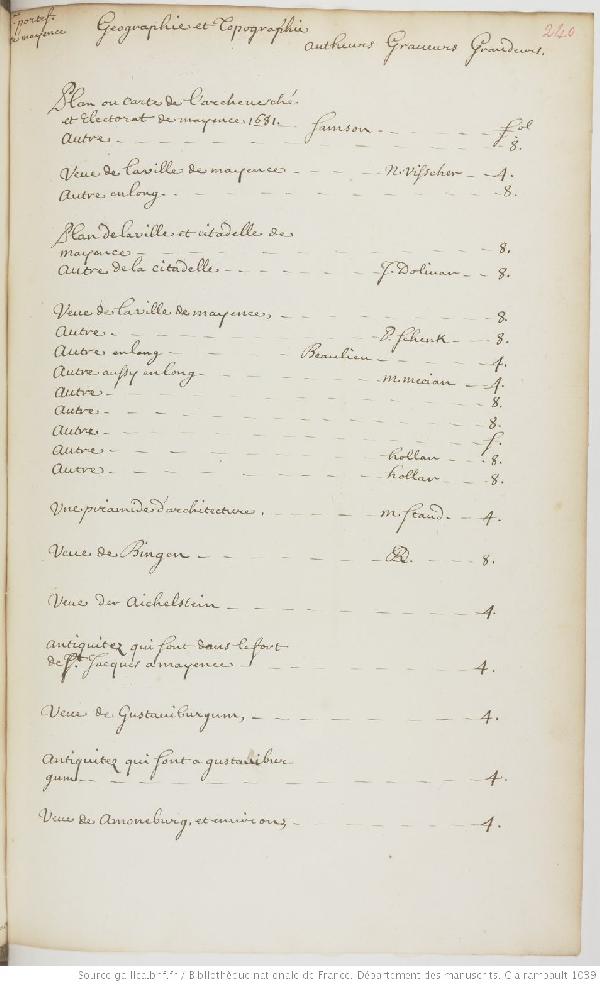 portef.
de mayence
Geographie et Topographie
autheurs Graueurs Grandeurs.
240
Plan ou carte de l'archeuesché
et Electorat de mayence 1631. Samson fol
Autre 8.
Veue de la ville de mayence N. Visscher 4.
Autre en long 8.
Plan de la ville et citadelle de
mayence 8.
Autre de la citadelle J. Doliuar 8.
Veue de la ville de mayence, 8.
Autre P. Schenk 8.
Autre en long Beaulieu 4.
Autre aussy en long m. merian 4.
Autre 8.
Autre 8.
Autre f.
Autre hollar 8.
Autre hollar 8.
Vne piramide d'architecture, m. Staud. 4.
Veue de Bingen 8.
Veue der Aichelstein 4.
antiquitez qui sont dans le fort
de St. Jacques a mayence 4.
Veue de Gustauiburgum, 4.
Antiquitez qui sont a gustauibur
gum 4.
Veue de Amoneburg, et enuirons, 4.
Source gallica.bnf.fr / Bibliothèque nationale de France. Département des manuscrits. Clairambault 1039